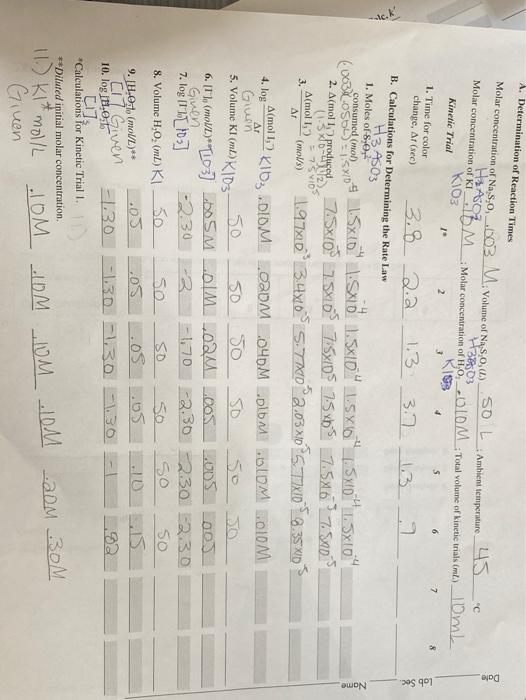 Date
Lab Sec.
Name
A. Determination of Reaction Times
Molar concentration of Na₂S₂O₃ .003 M ; Volume of Na₂S₂O₃ (L) 50 L ; Ambient temperature 45 °C
H3ASO3 H3ASO3
Molar concentration of KI .10 M ; Molar concentration of H₂O₂ .010M ; Total volume of kinetic trials (mL) 10mL
KIO3
Kinetic Trial 1* 2 3 4 5 6 7 8
1. Time for color change, Δt (sec) 3.8 2.2 1.3 3.7 1.3 .9
B. Calculations for Determining the Rate Law
H3ASO3
1. Moles of S₂O₃²⁻ consumed (mol) 1.5x10⁻⁴ 1.5x10⁻⁴ 1.5x10⁻⁴ 1.5x10⁻⁴ 1.5x10⁻⁴ 1.5x10⁻⁴
2. Δ(mol I₃⁻) produced 7.5x10⁻⁵ 7.5x10⁻⁵ 7.5x10⁻⁵ 7.5x10⁻⁵ 7.5x10⁻⁵ 7.5x10⁻⁵
3. Δ(mol I₃⁻)/Δt (mol/s) 1.97x10⁻⁵ 3.4x10⁻⁵ 5.77x10⁻⁵ 2.03x10⁻⁵ 5.77x10⁻⁵ 8.35x10⁻⁵
4. log Δ(mol I₃⁻)/Δt KIO3 .010M .020M .040M .010M .010M .010M
Given
5. Volume KI (mL) KIO3 50 50 50 50 50 50
6. [I⁻]₀ (mol/L)** [IO3] .005M .01M .02M .005 .005 .005
Given
7. log [I⁻]₀ [IO3] -2.30 -2 -1.70 -2.30 -2.30 -2.30
8. Volume H₂O₂ (mL) KI 50 50 50 50 50 50
9. [H₂O₂]₀ (mol/L)** .05 .05 .05 .05 .10 .15
[I] Given
10. log [H₂O₂]₀ -1.30 -1.30 -1.30 -1.30 -1 .82
*Calculations for Kinetic Trial 1.
**Diluted initial molar concentration.
11.) KI* mol/L .10M .10M .10M .10M .20M .30M
Given